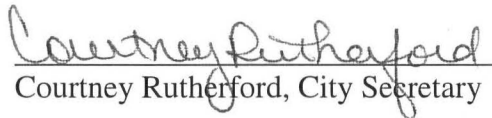 Courtney Rutherford
Courtney Rutherford, City Secretary